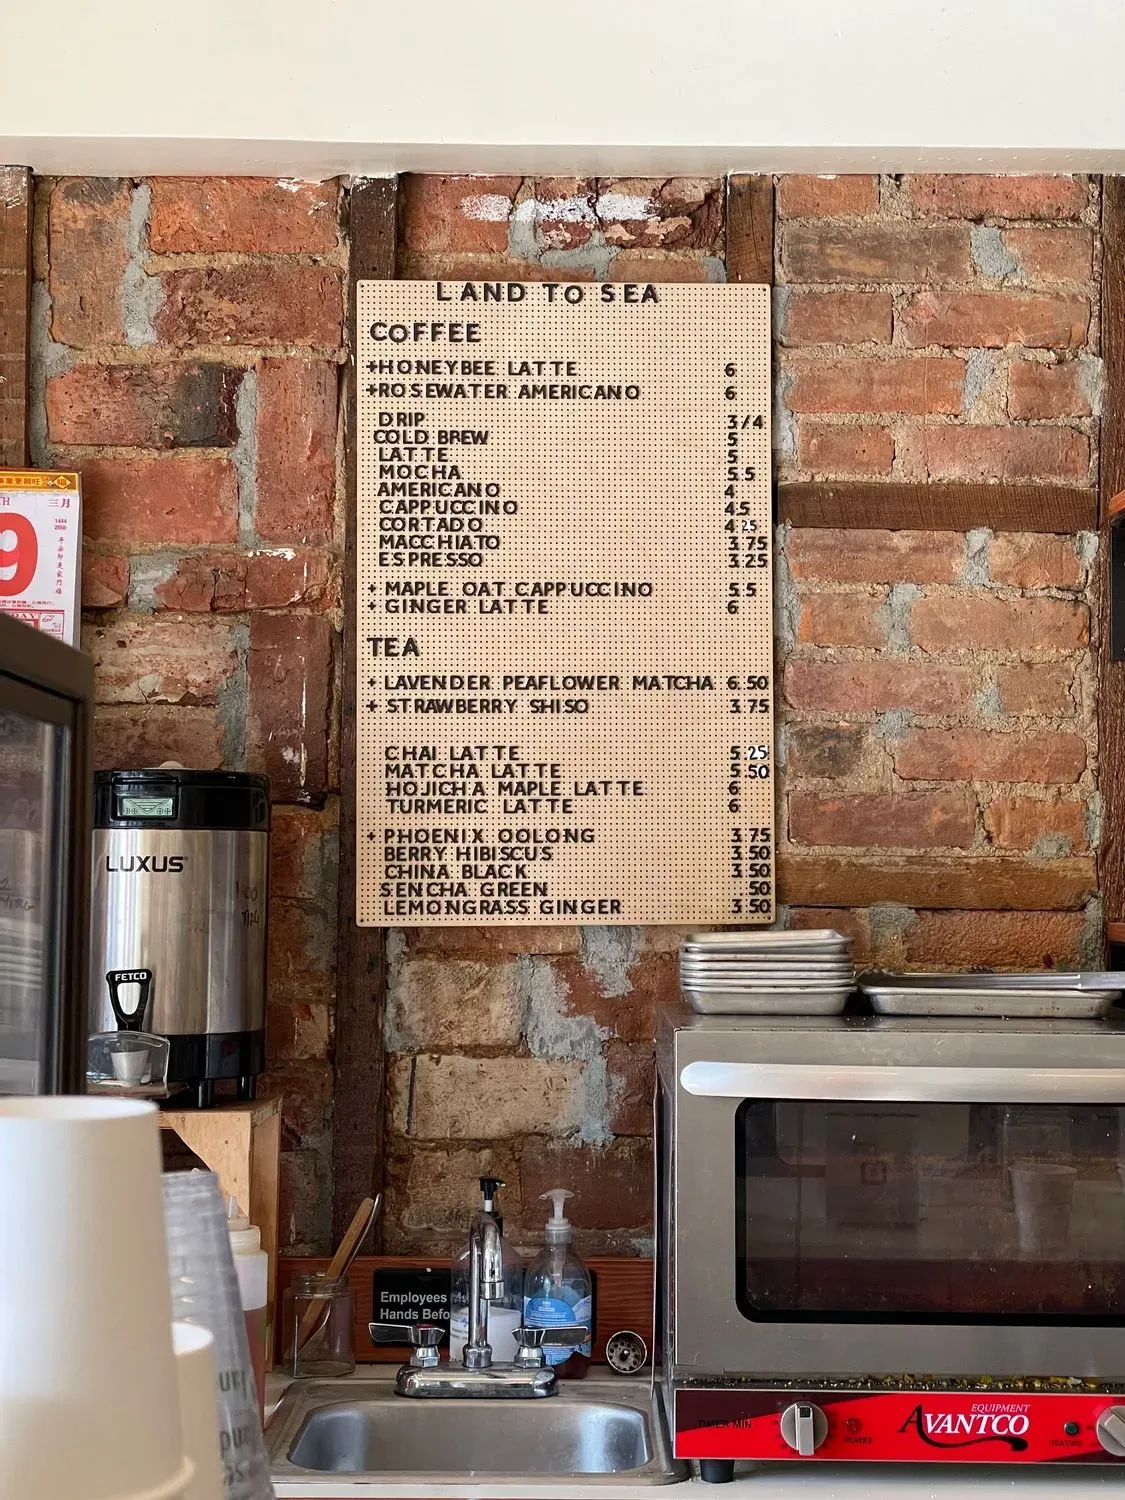 LAND TO SEA
COFFEE
+HONEYBEE LATTE 6
+ROSEWATER AMERICANO 6
DRIP 3/4
COLD BREW 5
LATTE 5
MOCHA 5.5
AMERICANO 4
CAPPUCCINO 4.5
CORTADO 4.25
MACCHIATO 3.75
ESPRESSO 3.25
+ MAPLE OAT CAPPUCCINO 5.5
+ GINGER LATTE 6
TEA
+ LAVENDER PEAFLOWER MATCHA 6.50
+ STRAWBERRY SHISO 3.75
CHAI LATTE 5.25
MATCHA LATTE 5.50
HOJICHA MAPLE LATTE 6
TURMERIC LATTE 6
+ PHOENIX OOLONG 3.75
BERRY HIBISCUS 3.50
CHINA BLACK 3.50
SENCHA GREEN 50
LEMONGRASS GINGER 3.50
三月
9
LUXUS
FETCO
Employees
Hands Befo
EQUIPMENT
AVANTCO
TIMER MIN
POWER
HEATING